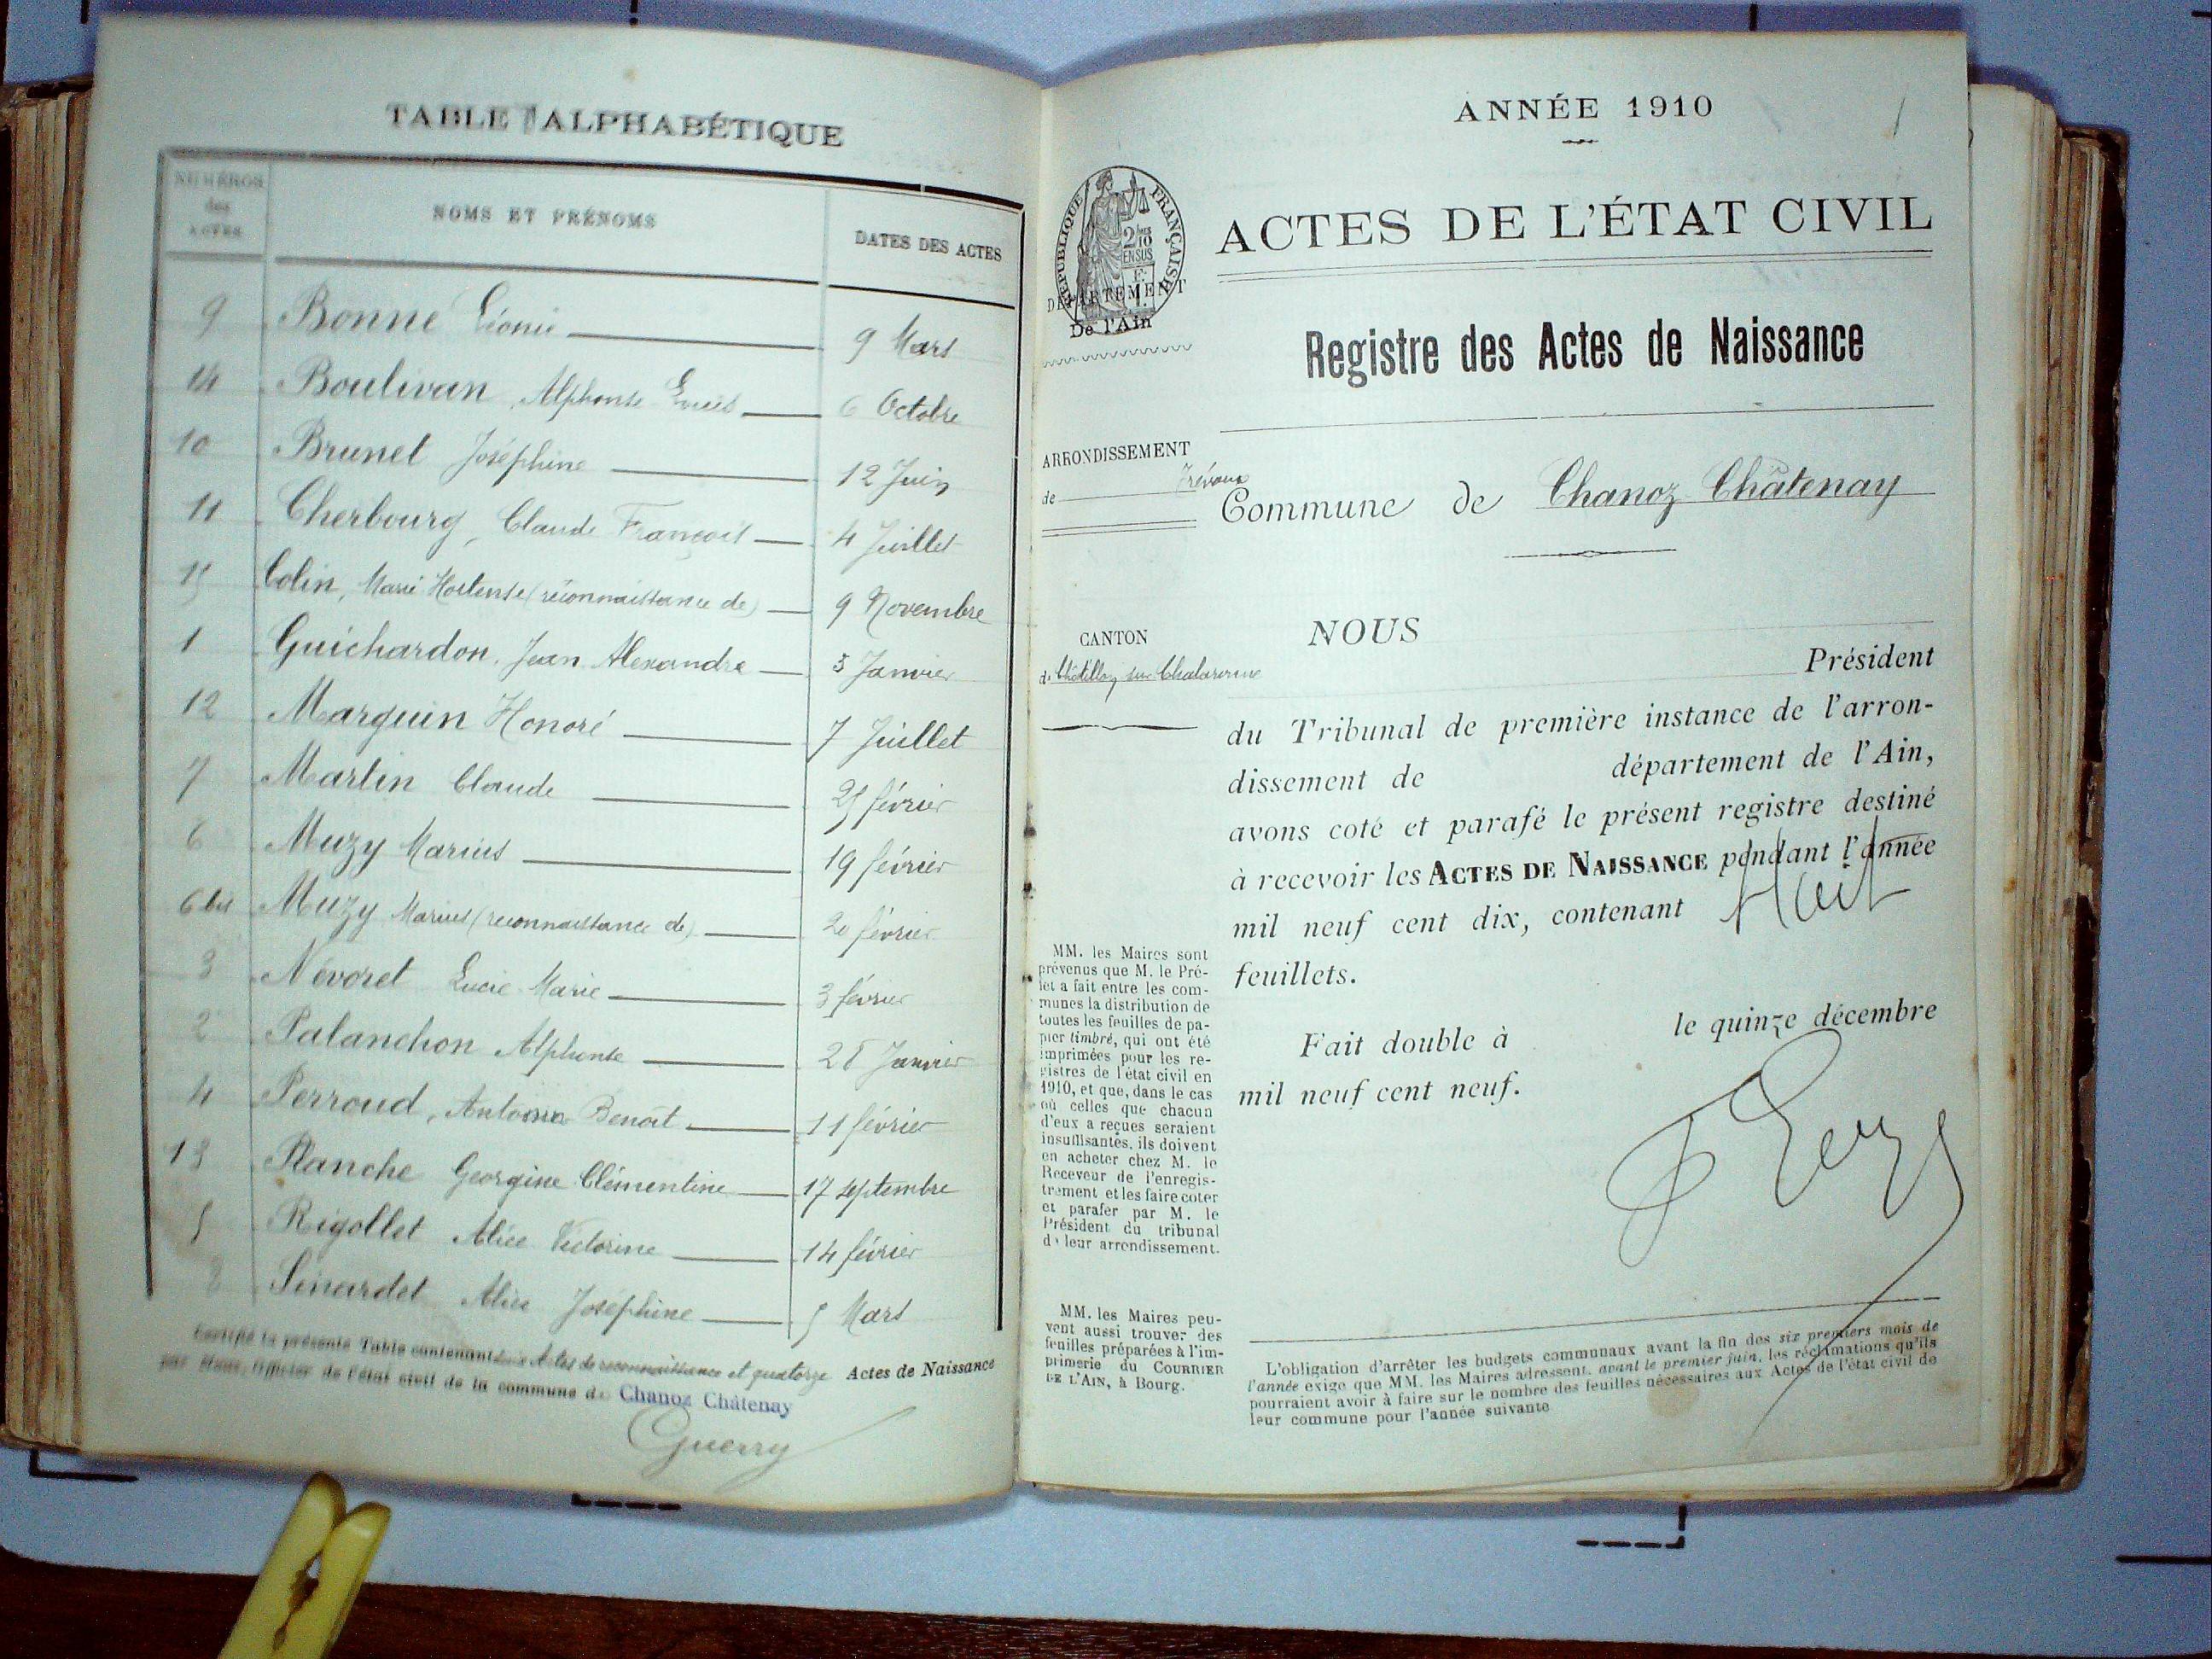 TABLE ALPHABÉTIQUE
NUMÉROS des ACTES
NOMS ET PRÉNOMS
DATES DES ACTES
9 Bonne Léonie 9 Mars
14 Boulivan, Alphonse Louis 6 Octobre
10 Brunel Joséphine 12 Juin
11 Cherbourg, Claude François 4 Juillet
15 Colin, Marie Hortense (reconnaissance de) 9 Novembre
1 Guichardon, Jean Alexandre 3 Janvier
12 Marguin Honoré 7 Juillet
7 Martin Claude 25 février
6 Muzy Marius 19 février
6 bis Muzy Marius (reconnaissance de) 20 février
3 Névoret Lucie Marie 3 février
2 Palanchon Alphonse 28 Janvier
4 Perroud, Antoine Benoit 11 février
13 Planche Georgine Clémentine 17 septembre
5 Rigollet Alice Victorine 14 février
8 Sinardet Alice Joséphine 5 Mars
Certifié la présente Table contenant deux Actes de reconnaissance et quatorze Actes de Naissance
par Nous, Officier de l'état civil de la commune de Chanoz Châtenay
Guerry
ANNÉE 1910
1
RÉPUBLIQUE FRANÇAISE
2/10
EN SUS
ACTES DE L'ÉTAT CIVIL
DÉPARTEMENT
De l'Ain
Registre des Actes de Naissance
ARRONDISSEMENT
de Trévoux
Commune de Chanoz Châtenay
CANTON
de Châtillon sur Chalaronne
NOUS
Président
du Tribunal de première instance de l'arron-
dissement de département de l'Ain,
avons coté et parafé le présent registre destiné
à recevoir les ACTES DE NAISSANCE pendant l'année
mil neuf cent dix, contenant Huit
feuillets.
Fait double à le quinze décembre
mil neuf cent neuf.
MM. les Maires sont
prévenus que M. le Pré-
fet a fait entre les com-
munes la distribution de
toutes les feuilles de pa-
pier timbré, qui ont été
imprimées pour les re-
gistres de l'état civil en
1910, et que, dans le cas
où celles que chacun
d'eux a reçues seraient
insuffisantes, ils doivent
en acheter chez M. le
Receveur de l'enregis-
trement et les faire coter
et parafer par M. le
Président du tribunal
de leur arrondissement.
MM. les Maires peu-
vent aussi trouver des
feuilles préparées à l'im-
primerie du COURRIER
DE L'AIN, à Bourg.
L'obligation d'arrêter les budgets communaux avant la fin des six premiers mois de
l'année exige que MM. les Maires adressent, avant le premier juin, les réclamations qu'ils
pourraient avoir à faire sur le nombre des feuilles nécessaires aux Actes de l'état civil de
leur commune pour l'année suivante